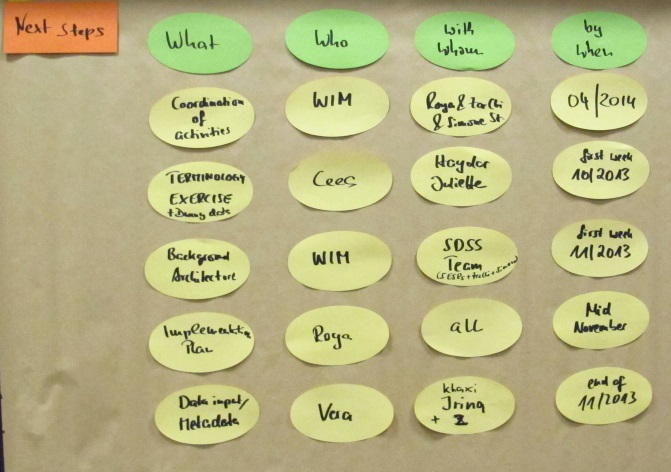 Next Steps
What
Who
with
whom
by
when
Coordination
of
activities
WIM
Roya &
& Simone St
04/2014
TERMINOLOGY
EXERCISE
Cees
Haydar
Juliette
first week
10/2013
Background
Architecture
WIM
SDSS
Team
first week
11/2013
Implementation
Plan
Roya
all
Mid
November
Data input/
Metadata
Vera
Irina
+
end of
11/2013